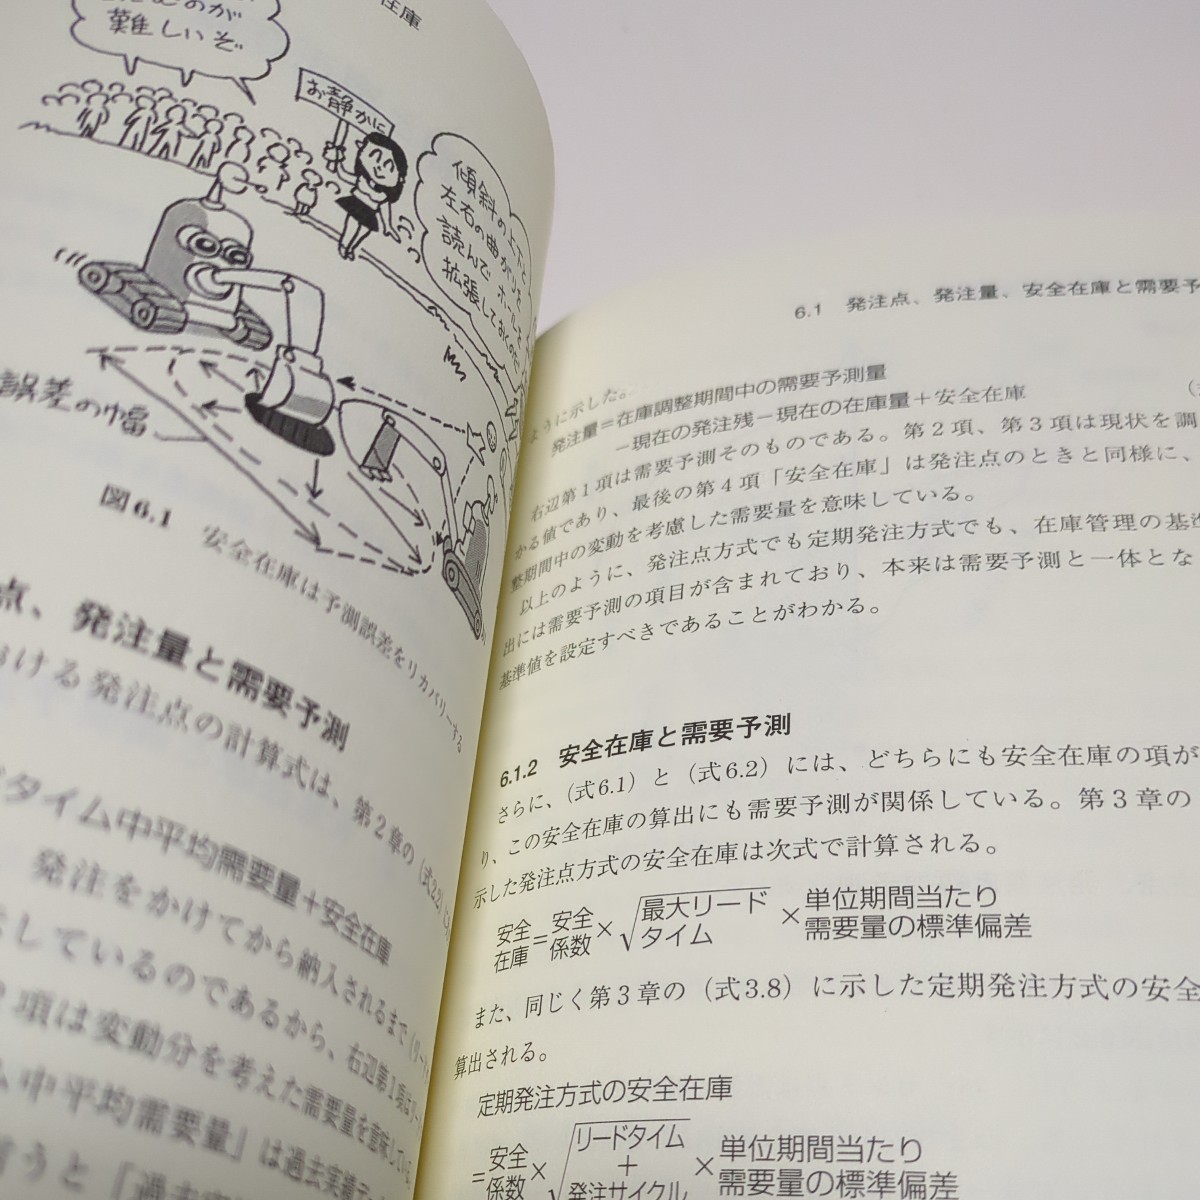 在庫
難しいぞ
お静かに
傾斜の上下と
左右の曲がりを
読んで ホールを
拡張しておくのだ
誤差の幅
図6.1 安全在庫は予測誤差をリカバリーする
点、発注量と需要予測
おける発注点の計算式は、第2章の(式2.2)
タイム中平均需要量+安全在庫
発注をかけてから納入されるまで
しているのであるから、右辺第1項は
項は変動分を考えた需要量を意味している。
中平均需要量」は過去実績
うと「過去
6.1 発注点、発注量、安全在庫と需要予
ように示した。
発注量=在庫調整期間中の需要予測量
-現在の発注残-現在の在庫量+安全在庫
右辺第1項は需要予測そのものである。第2項、第3項は現状を調
かる値であり、最後の第4項「安全在庫」は発注点のときと同様に、
整期間中の変動を考慮した需要量を意味している。
以上のように、発注点方式でも定期発注方式でも、在庫管理の基準
出には需要予測の項目が含まれており、本来は需要予測と一体とな
基準値を設定すべきであることがわかる。
6.1.2 安全在庫と需要予測
さらに、(式6.1)と(式6.2)には、どちらにも安全在庫の項が
り、この安全在庫の算出にも需要予測が関係している。第3章の
示した発注点方式の安全在庫は次式で計算される。
安全在庫=安全係数×√最大リードタイム×単位期間当たり需要量の標準偏差
また、同じく第3章の(式3.8)に示した定期発注方式の安全
算出される。
定期発注方式の安全在庫
=安全係数×√リードタイム+発注サイクル×単位期間当たり需要量の標準偏差